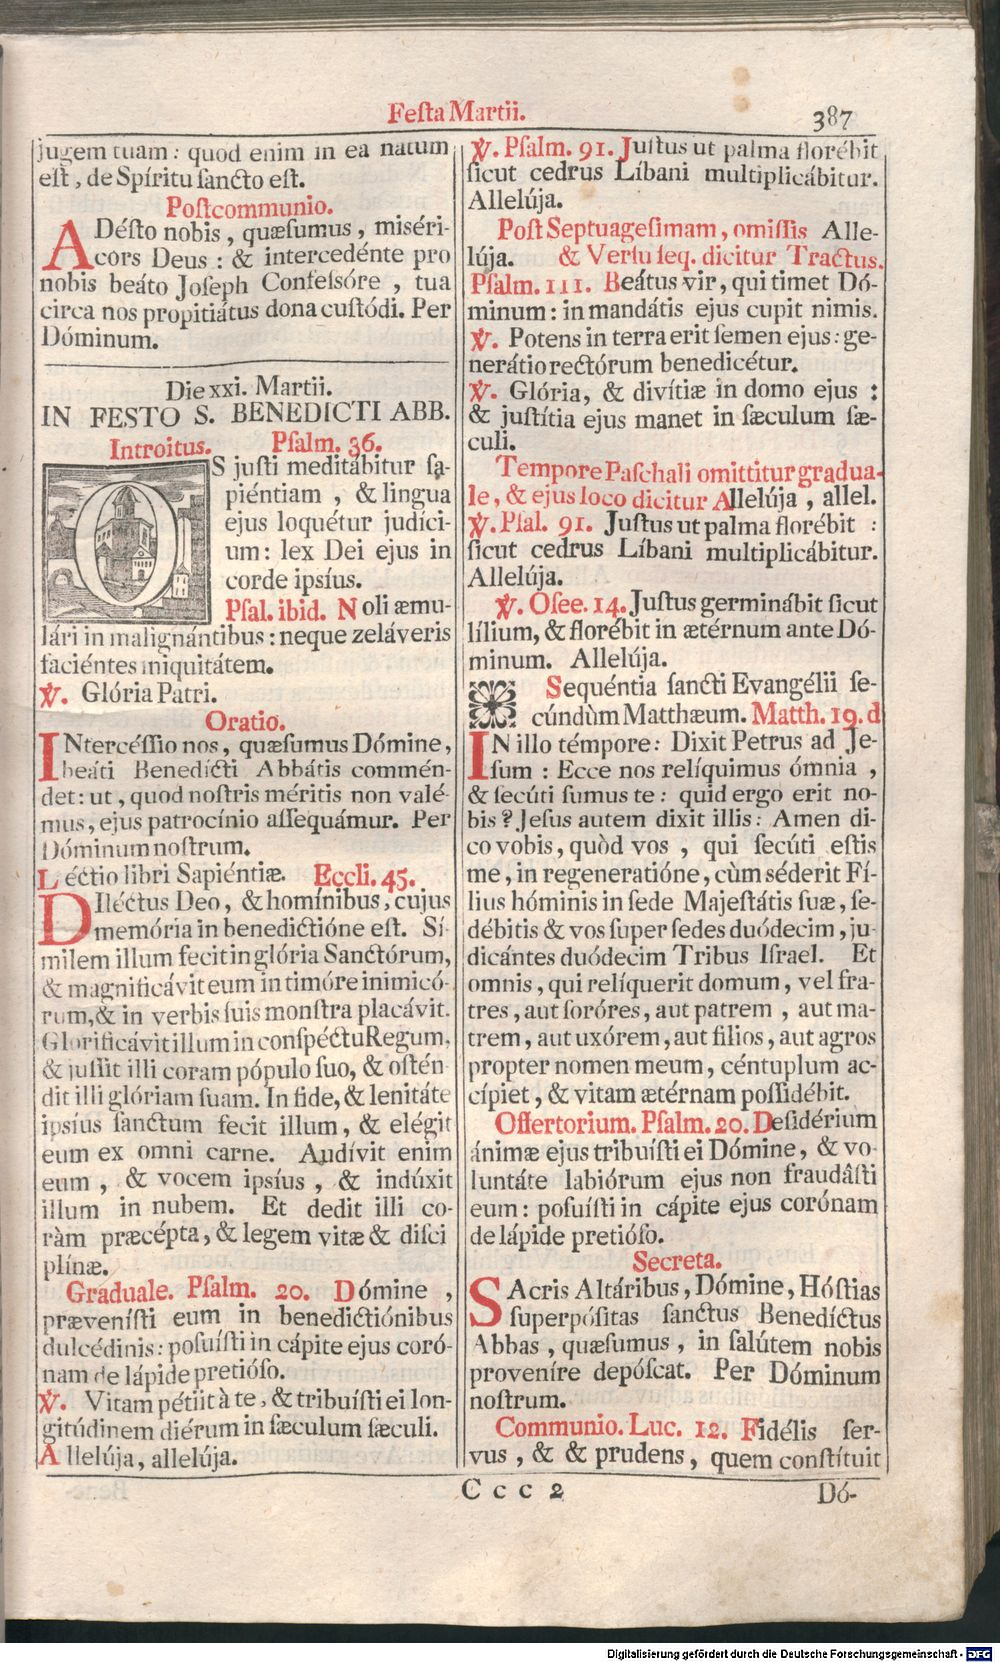 Feſta Martii.
387
jugem tuam: quod enim in ea natum
eſt, de Spíritu ſancto eſt.
Poſtcommunio.
ADéſto nobis, quæſumus, miſéri-
cors Deus: & intercedénte pro
nobis beáto Joſeph Confeſsóre, tua
circa nos propitiátus dona cuſtódi. Per
Dóminum.
Die xxi. Martii.
IN FESTO S. BENEDICTI ABB.
Introitus. Pſalm. 36.
OS juſti meditábitur ſa-
piéntiam, & lingua
ejus loquétur judíci-
um: lex Dei ejus in
corde ipsíus.
Pſal. ibid. Noli æmu-
lári in malignántibus: neque zeláveris
faciéntes iniquitátem.
℣. Glória Patri.
Oratio.
INtercéſſio nos, quæſumus Dómine,
beáti Benedícti Abbátis commén-
det: ut, quod noſtris méritis non valé-
mus, ejus patrocínio aſſequámur. Per
Dóminum noſtrum.
Léctio libri Sapiéntiæ. Eccli. 45.
DIléctus Deo, & homínibus, cujus
memória in benedictióne eſt. Sí-
milem illum fecit in glória Sanctórum,
& magnificávit eum in timóre inimicó-
rum, & in verbis ſuis monſtra placávit.
Glorificávit illum in conſpéctu Regum,
& juſſit illi coram pópulo ſuo, & oſtén-
dit illi glóriam ſuam. In fide, & lenitáte
ipsíus ſanctum fecit illum, & elégit
eum ex omni carne. Audívit enim
eum, & vocem ipsíus, & indúxit
illum in nubem. Et dedit illi co-
ràm præcépta, & legem vitæ & diſci
plínæ.
Graduale. Pſalm. 20. Dómine,
præveníſti eum in benedictiónibus
dulcédinis: poſuíſti in cápite ejus coró-
nam de lápide pretióſo.
℣. Vitam pétiit à te, & tribuíſti ei lon-
gitúdinem diérum in ſæculum ſæculi.
Allelúja, allelúja.
℣. Pſalm. 91. Juſtus ut palma florébit
ſicut cedrus Líbani multiplicábitur.
Allelúja.
Poſt Septuageſimam, omiſſis Alle-
lúja. & Verſu ſeq. dicitur Tractus.
Pſalm. 111. Beátus vir, qui timet Dó-
minum: in mandátis ejus cupit nimis.
℣. Potens in terra erit ſemen ejus: ge-
nerátio rectórum benedicétur.
℣. Glória, & divítiæ in domo ejus:
& juſtítia ejus manet in ſæculum ſæ-
culi.
Tempore Paſchali omittitur gradua-
le, & ejus loco dicitur Allelúja, allel.
℣. Pſal. 91. Juſtus ut palma florébit:
ſicut cedrus Líbani multiplicábitur.
Allelúja.
℣. Oſee. 14. Juſtus germinábit ſicut
lílium, & florébit in ætérnum ante Dó-
minum. Allelúja.
Sequéntia ſancti Evangélii ſe-
cúndùm Matthæum. Matth. 19. d
IN illo témpore: Dixit Petrus ad Je-
ſum: Ecce nos relíquimus ómnia,
& ſecúti ſumus te: quid ergo erit no-
bis? Jeſus autem dixit illis: Amen di-
co vobis, quòd vos, qui ſecúti eſtis
me, in regeneratióne, cùm séderit Fí-
lius hóminis in ſede Majeſtátis ſuæ, ſe-
débitis & vos ſuper ſedes duódecim, ju-
dicántes duódecim Tribus Iſrael. Et
omnis, qui relíquerit domum, vel fra-
tres, aut ſoróres, aut patrem, aut ma-
trem, aut uxórem, aut filios, aut agros
propter nomen meum, céntuplum ac-
cípiet, & vitam ætérnam poſſidébit.
Offertorium. Pſalm. 20. Deſidérium
ánimæ ejus tribuíſti ei Dómine, & vo-
luntáte labiórum ejus non fraudâſti
eum: poſuíſti in cápite ejus corónam
de lápide pretióſo.
Secreta.
SAcris Altáribus, Dómine, Hóſtias
ſuperpóſitas ſanctus Benedíctus
Abbas, quæſumus, in ſalútem nobis
proveníre depóſcat. Per Dóminum
noſtrum.
Communio. Luc. 12. Fidélis ſer-
vus, & & prudens, quem conſtítuit
Ccc 2
Dó-
Digitalisierung gefördert durch die Deutsche Forschungsgemeinschaft - DFG